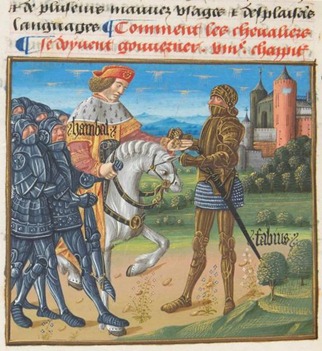 ⁊ de plusieurs mauuez vsages ⁊ desplaisās
languages ¶ Comment les cheualiers
se doyuent gouuerner. chappit
hanibal
fabius